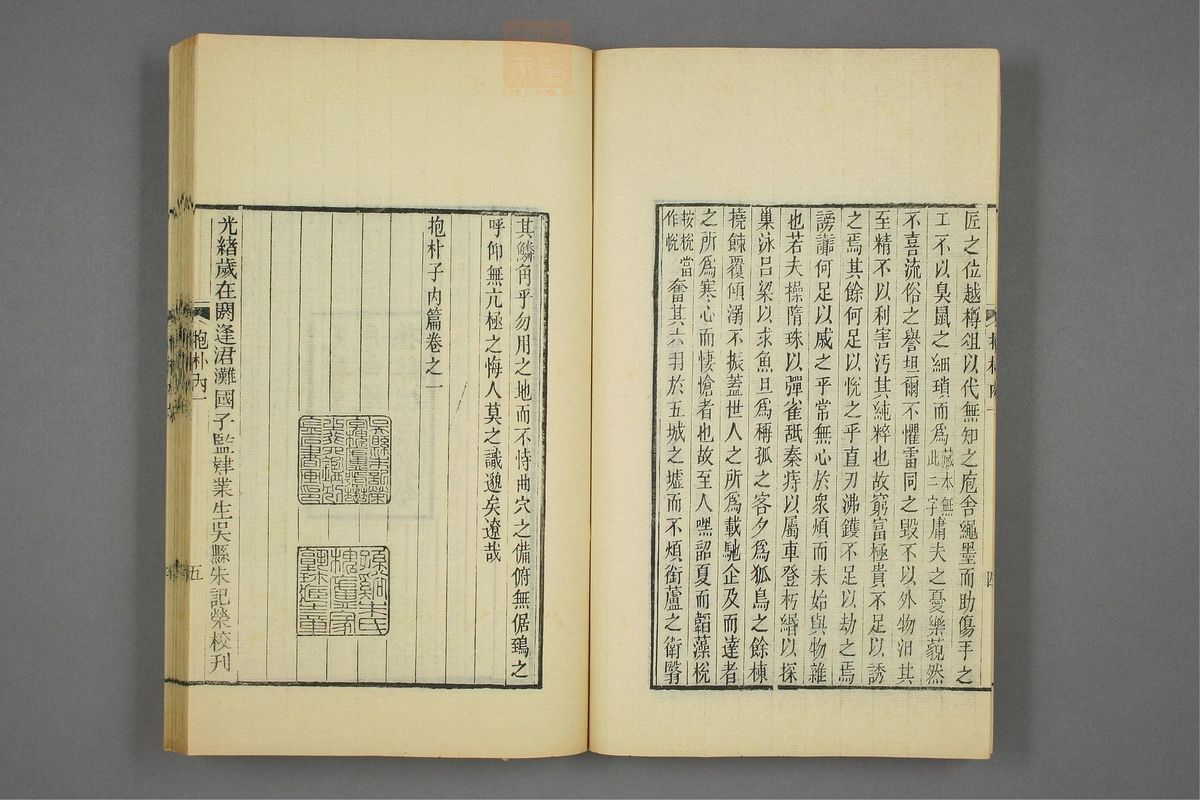 匠之位越樽俎以代無知之庖舍繩墨而助傷手之
工不以臭鼠之細瑣而爲藏本無此二字庸夫之憂樂藐然
不喜流俗之譽坦爾不懼雷同之毀不以外物汨其
至精不以利害汚其純粹也故窮富極貴不足以誘
之焉其餘何足以悅之乎直刃沸鑊不足以劫之焉
謗讟何足以戚之乎常無心於衆煩而未始與物雜
也若夫操隋珠以彈雀舐秦痔以屬車登朽緡以探
巢泳呂梁以求魚旦爲稱孤之客夕爲狐鳥之餘棟
撓餗覆傾溺不振蓋世人之所爲載馳企及而達者
之所爲寒心而悽愴者也故至人嘿韶夏而韜藻梲
按梲當作帨奮其六羽於五城之墟而不煩銜蘆之衛翳
抱朴內一
四
其鱗角乎勿用之地而不恃曲穴之備俯無倨鵄之
呼仰無亢極之悔人莫之識邈矣遼哉
抱朴子內篇卷之一
吳縣朱記榮
孫谿朱氏槐廬家塾珠
光緒歲在閼逢涒灘國子監肄業生吳縣朱記榮校刊
抱朴內一
五